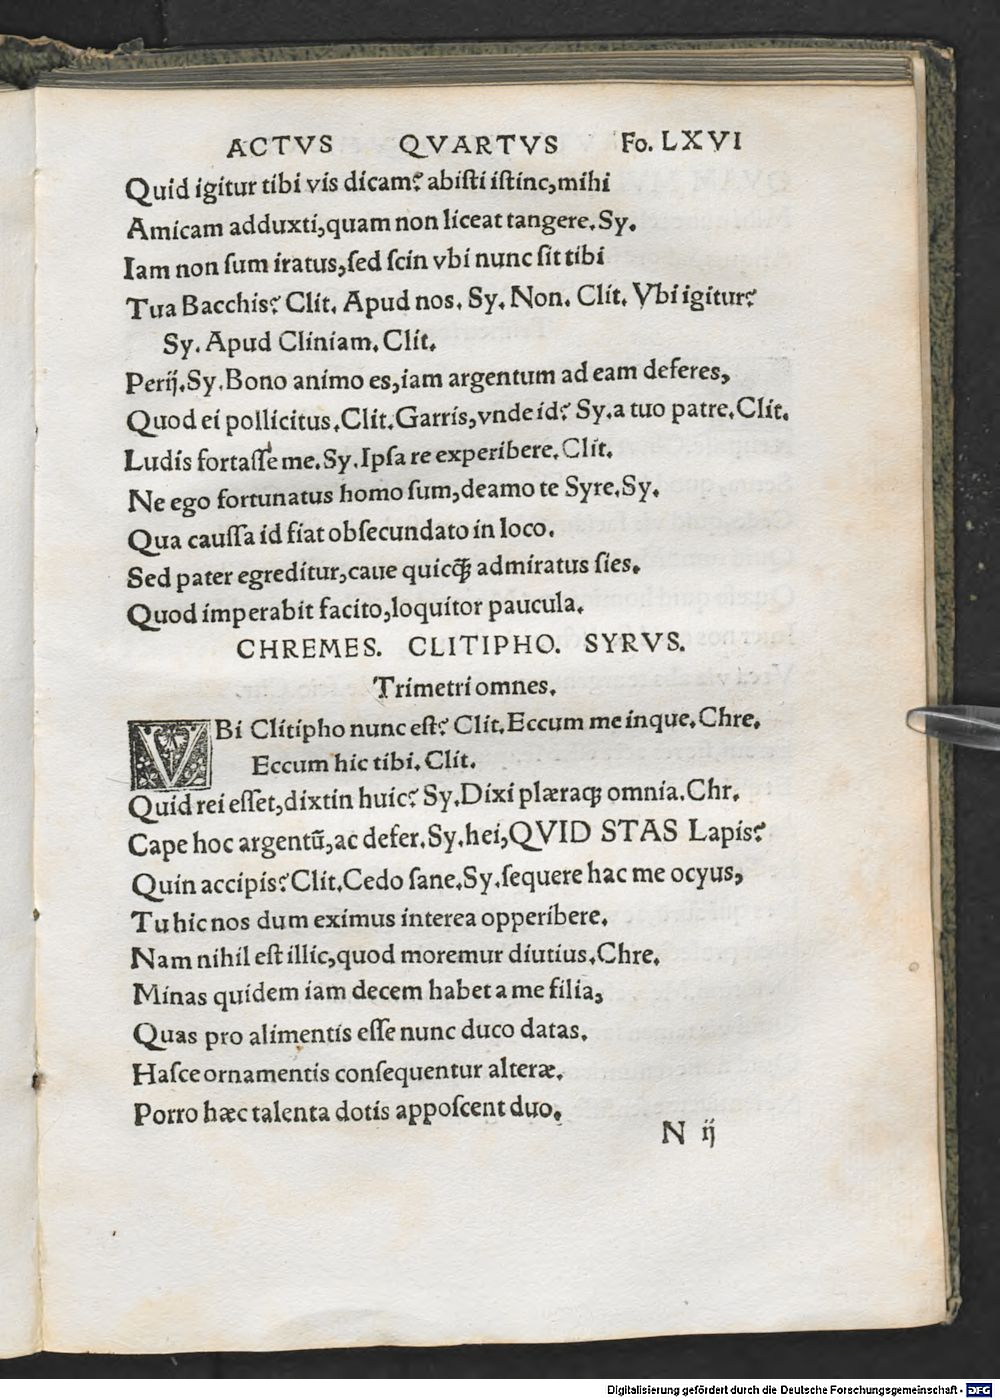 ACTVS QVARTVS Fo. LXVI
Quid igitur tibi vis dicam? abiſti iſtinc, mihi
Amicam adduxti, quam non liceat tangere. Sy.
Iam non ſum iratus, ſed ſcin vbi nunc ſit tibi
Tua Bacchis? Clit. Apud nos. Sy. Non. Clit. Vbi igitur?
Sy. Apud Cliniam. Clit.
Perij. Sy. Bono animo es, iam argentum ad eam deferes,
Quod ei pollicitus. Clit. Garris, vnde id? Sy. a tuo patre. Clit.
Ludis fortaſſe me. Sy. Ipſa re experibere. Clit.
Ne ego fortunatus homo ſum, deamo te Syre. Sy.
Qua cauſſa id fiat obſecundato in loco.
Sed pater egreditur, caue quicq̃ admiratus ſies.
Quod imperabit facito, loquitor paucula.
CHREMES. CLITIPHO. SYRVS.
Trimetri omnes.
VBi Clitipho nunc eſt? Clit. Eccum me inque. Chre.
Eccum hic tibi. Clit.
Quid rei eſſet, dixtin huic? Sy. Dixi plæraqꝫ omnia. Chr.
Cape hoc argentũ, ac defer. Sy. hei, QVID STAS Lapis?
Quin accipis? Clit. Cedo ſane. Sy. ſequere hac me ocyus,
Tu hic nos dum eximus interea opperibere.
Nam nihil eſt illic, quod moremur diutius. Chre.
Minas quidem iam decem habet a me filia,
Quas pro alimentis eſſe nunc duco datas.
Haſce ornamentis conſequentur alteræ.
Porro hæc talenta dotis appoſcent duo.
N ij
Digitalisierung gefördert durch die Deutsche Forschungsgemeinschaft - DFG